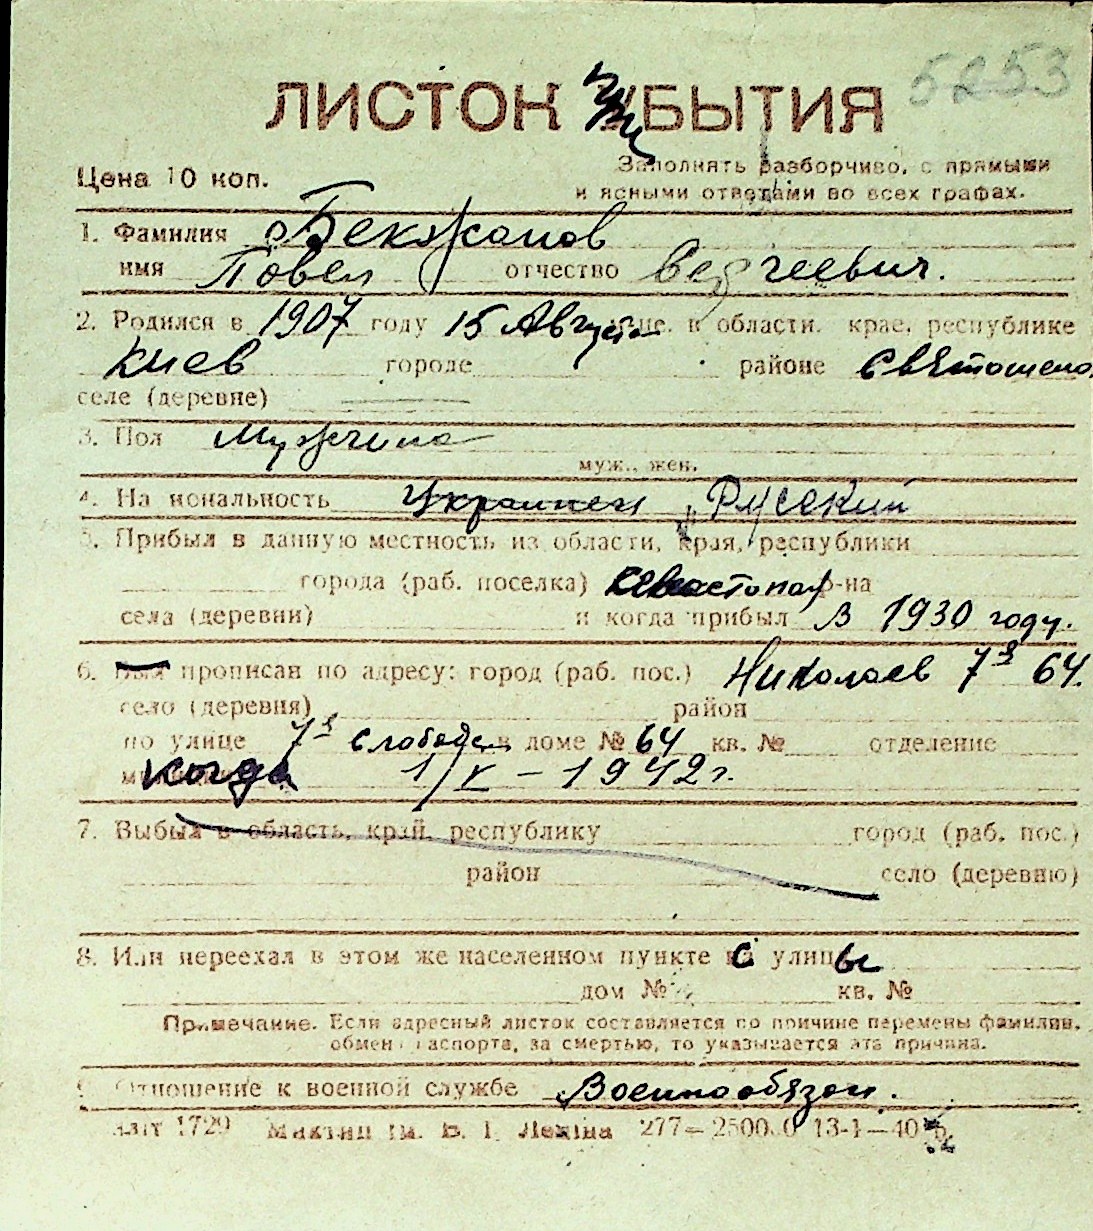 5253
ЛИСТОК При БЫТИЯ
Цена 10 коп.
Заполнять разборчиво, с прямыми
и ясными ответами во всех графах.
1. Фамилия Бекжанов
имя Павел отчество Сергеевич.
2. Родился в 1907 году 15 Августа в области, крае, республике
Киев городе районе Святошено
селе (деревне)
3. Пол Мужчина
муж., жен.
4. Национальность Украинец Русский
5. Прибыл в данную местность из области, края, республики
города (раб. поселка) Севастополь р-на
села (деревни) и когда прибыл В 1930 году.
6. прописан по адресу: город (раб. пос.) Николаев 7я 64.
село (деревня) район
по улице 7я Слобода в доме № 64 кв. № отделение
когда 1/X - 1942 г.
7. Выбыл в область, край, республику город (раб. пос.)
район село (деревню)
8. Или переехал в этом же населенном пункте с улицы
дом № кв. №
Примечание. Если адресный листок составляется по причине перемены фамилии,
обмен паспорта, за смертью, то указывается эта причина.
9. Отношение к военной службе Военнообязан.
1729 ім. В. І. Леніна 277— 13-1—40